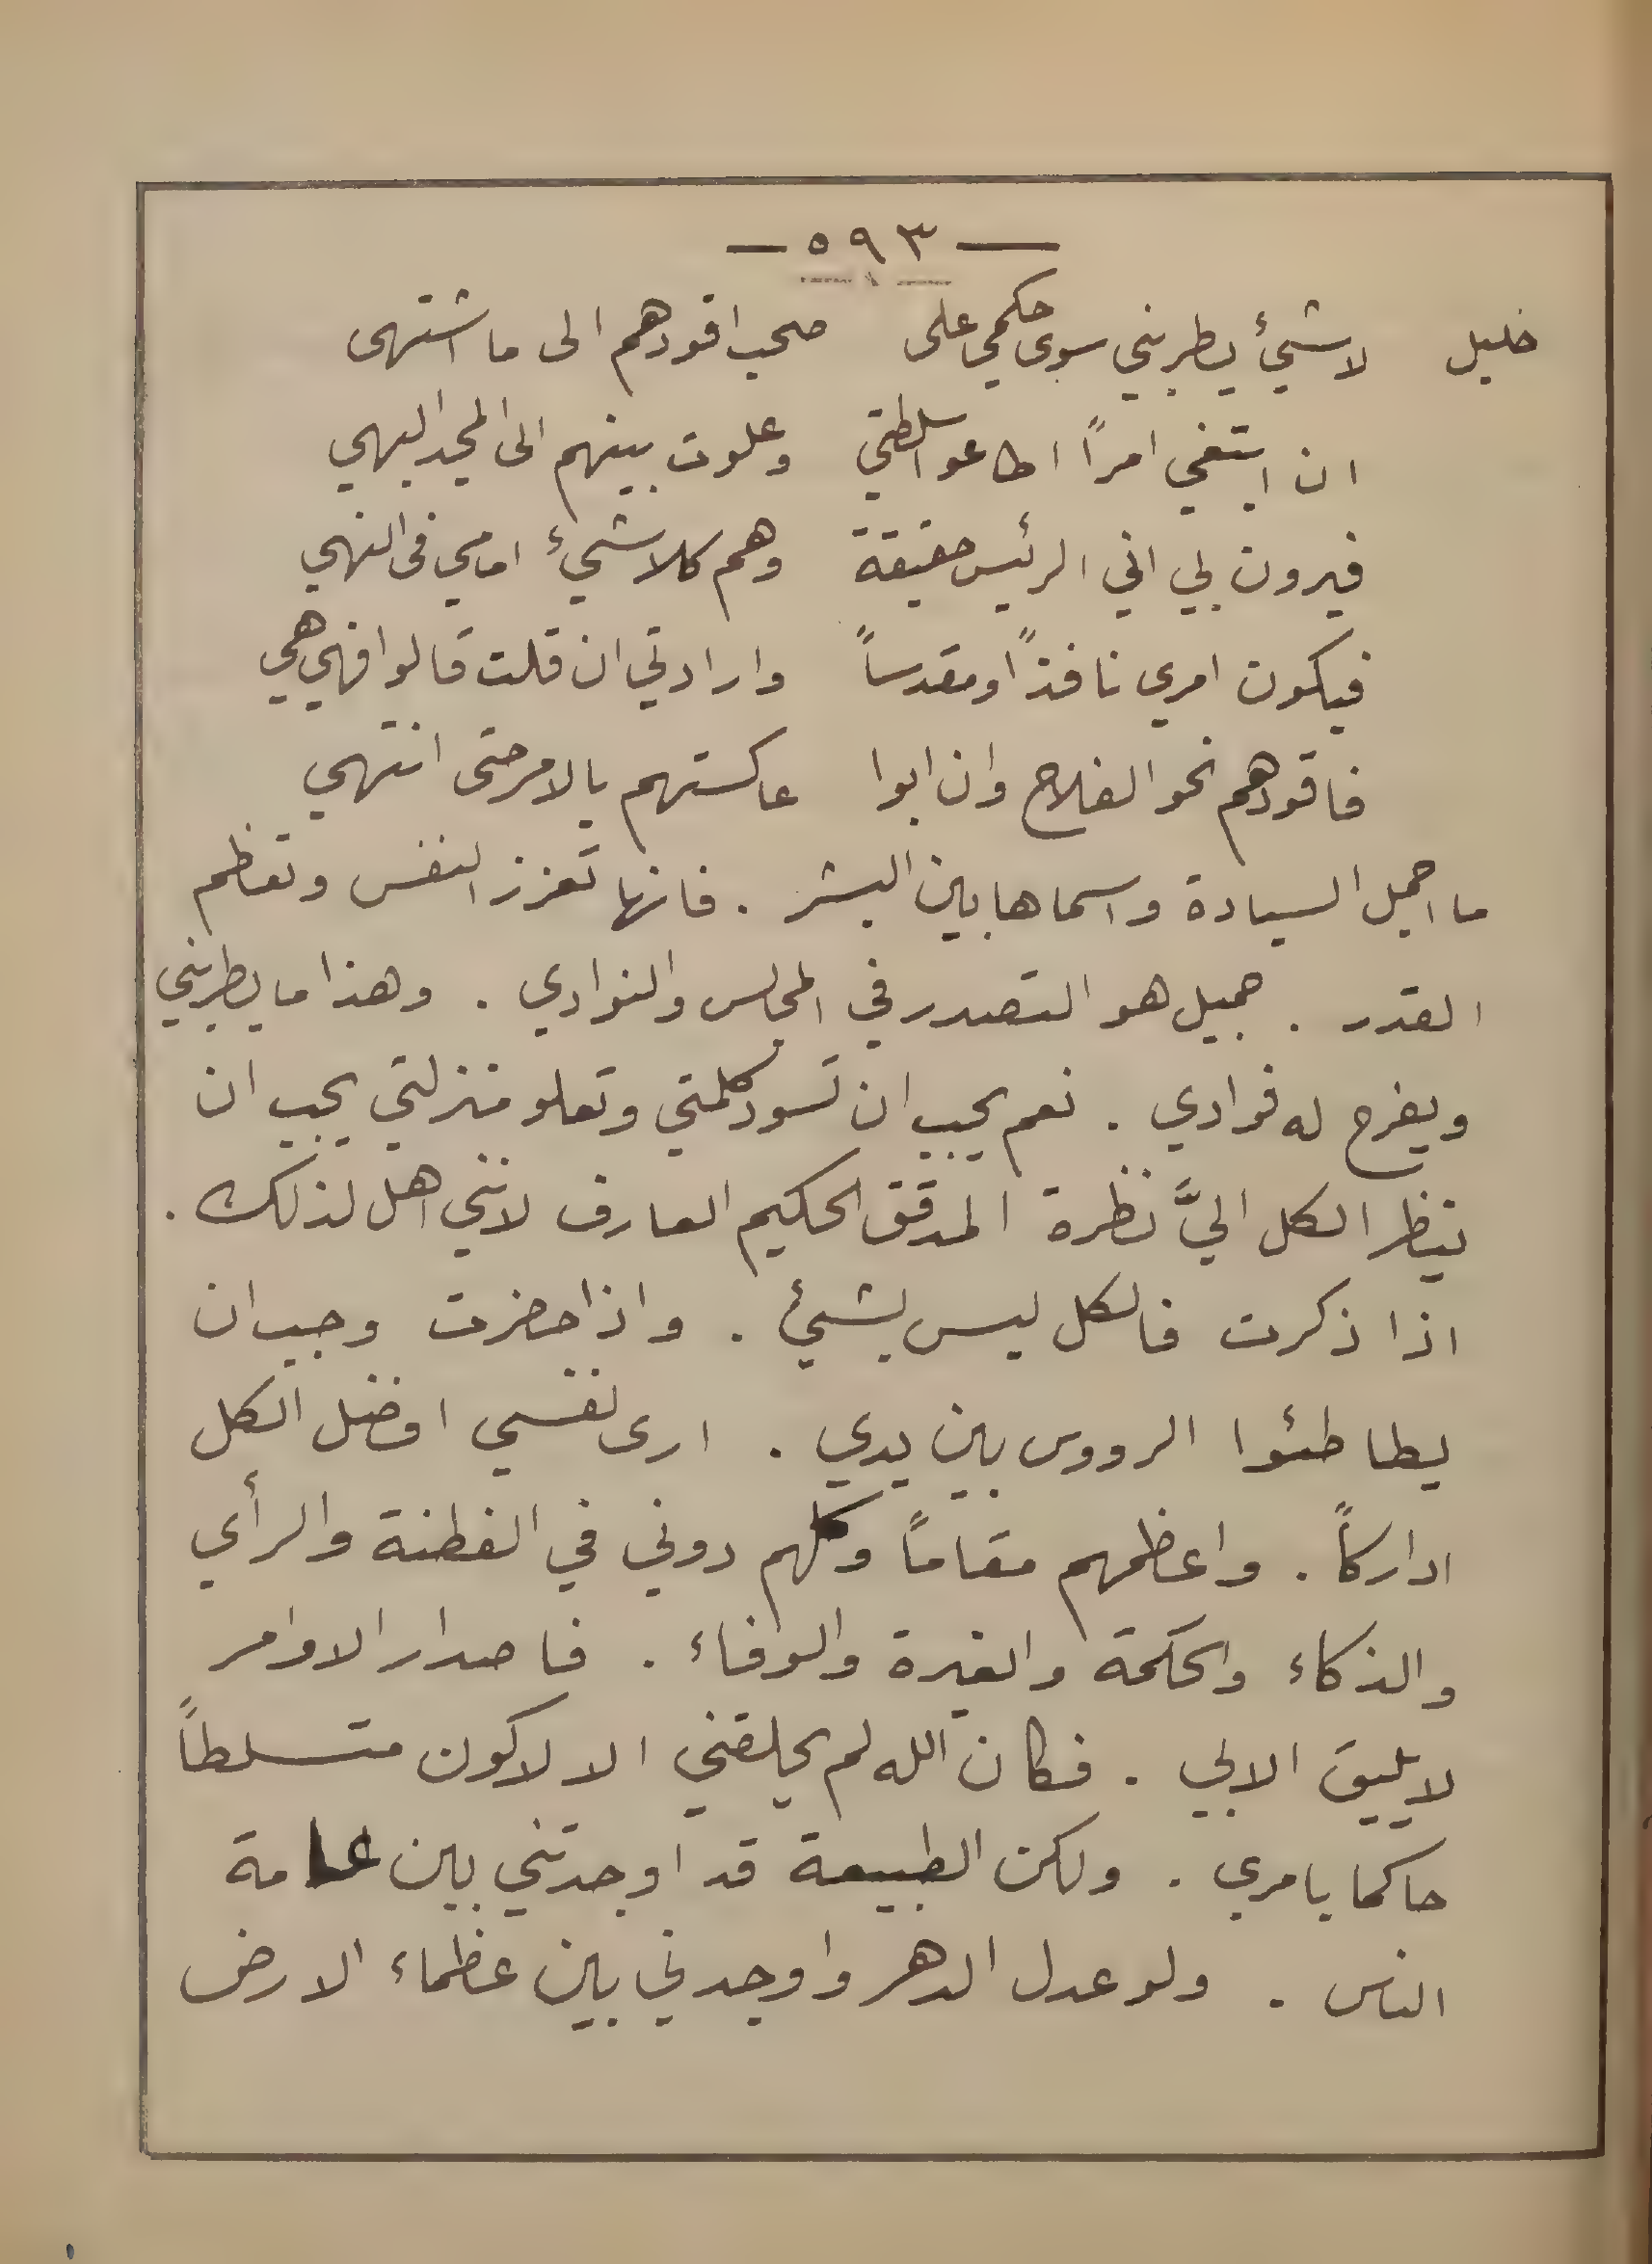 — ٥٩٣ —
خليل لا شيئ يطربني سوى حكمي على صحب اقودهم الى ما اشتهى
ان ابتغي امراً اطاعوا سلطتي وعلوت بينهم الى المجد البهي
فيرون لي اني الرئيس حقيقة وهم كلا شيء امامي فى النهي
فيكون امري نافذاً ومقدساً وارادتي ان قلت قالوا فهي هي
فاقودهم نحو الفلاح وان ابوا عاكستهم بالامر حتى انتهي
ما اجمل السيادة واسماها بين البشر . فانها تعزز النفس وتعظم
القدر . جميل هو التصدر في المجالس والنوادي . وهذا ما يطربني
ويفرح له فوادي . نعم يجب ان تسود كلمتي وتعلو منزلتي يجب ان
ينظر الكل اليَّ نظرة المدقق الحكيم العارف لانني اهل لذلك .
اذا ذكرت فالكل ليس بشيئ . واذا حضرت وجب ان
يطاطئوا الرووس بين يدي . ارى نفسي افضل الكل
اداركاً . واعظمهم مقاماً وكلهم دوني في الفطنة والرأي
والذكاء والحكمة والغيرة والوفاء . فاصدار الاوامر
لا يليق الا بي . فكان الله لم يخلقني الا لاكون متسلطاً
حاكما بامري . ولكن الطبيعة قد اوجدتني بين عامة
الناس . ولو عدل الدهر واوجدني بين عظماء الارض